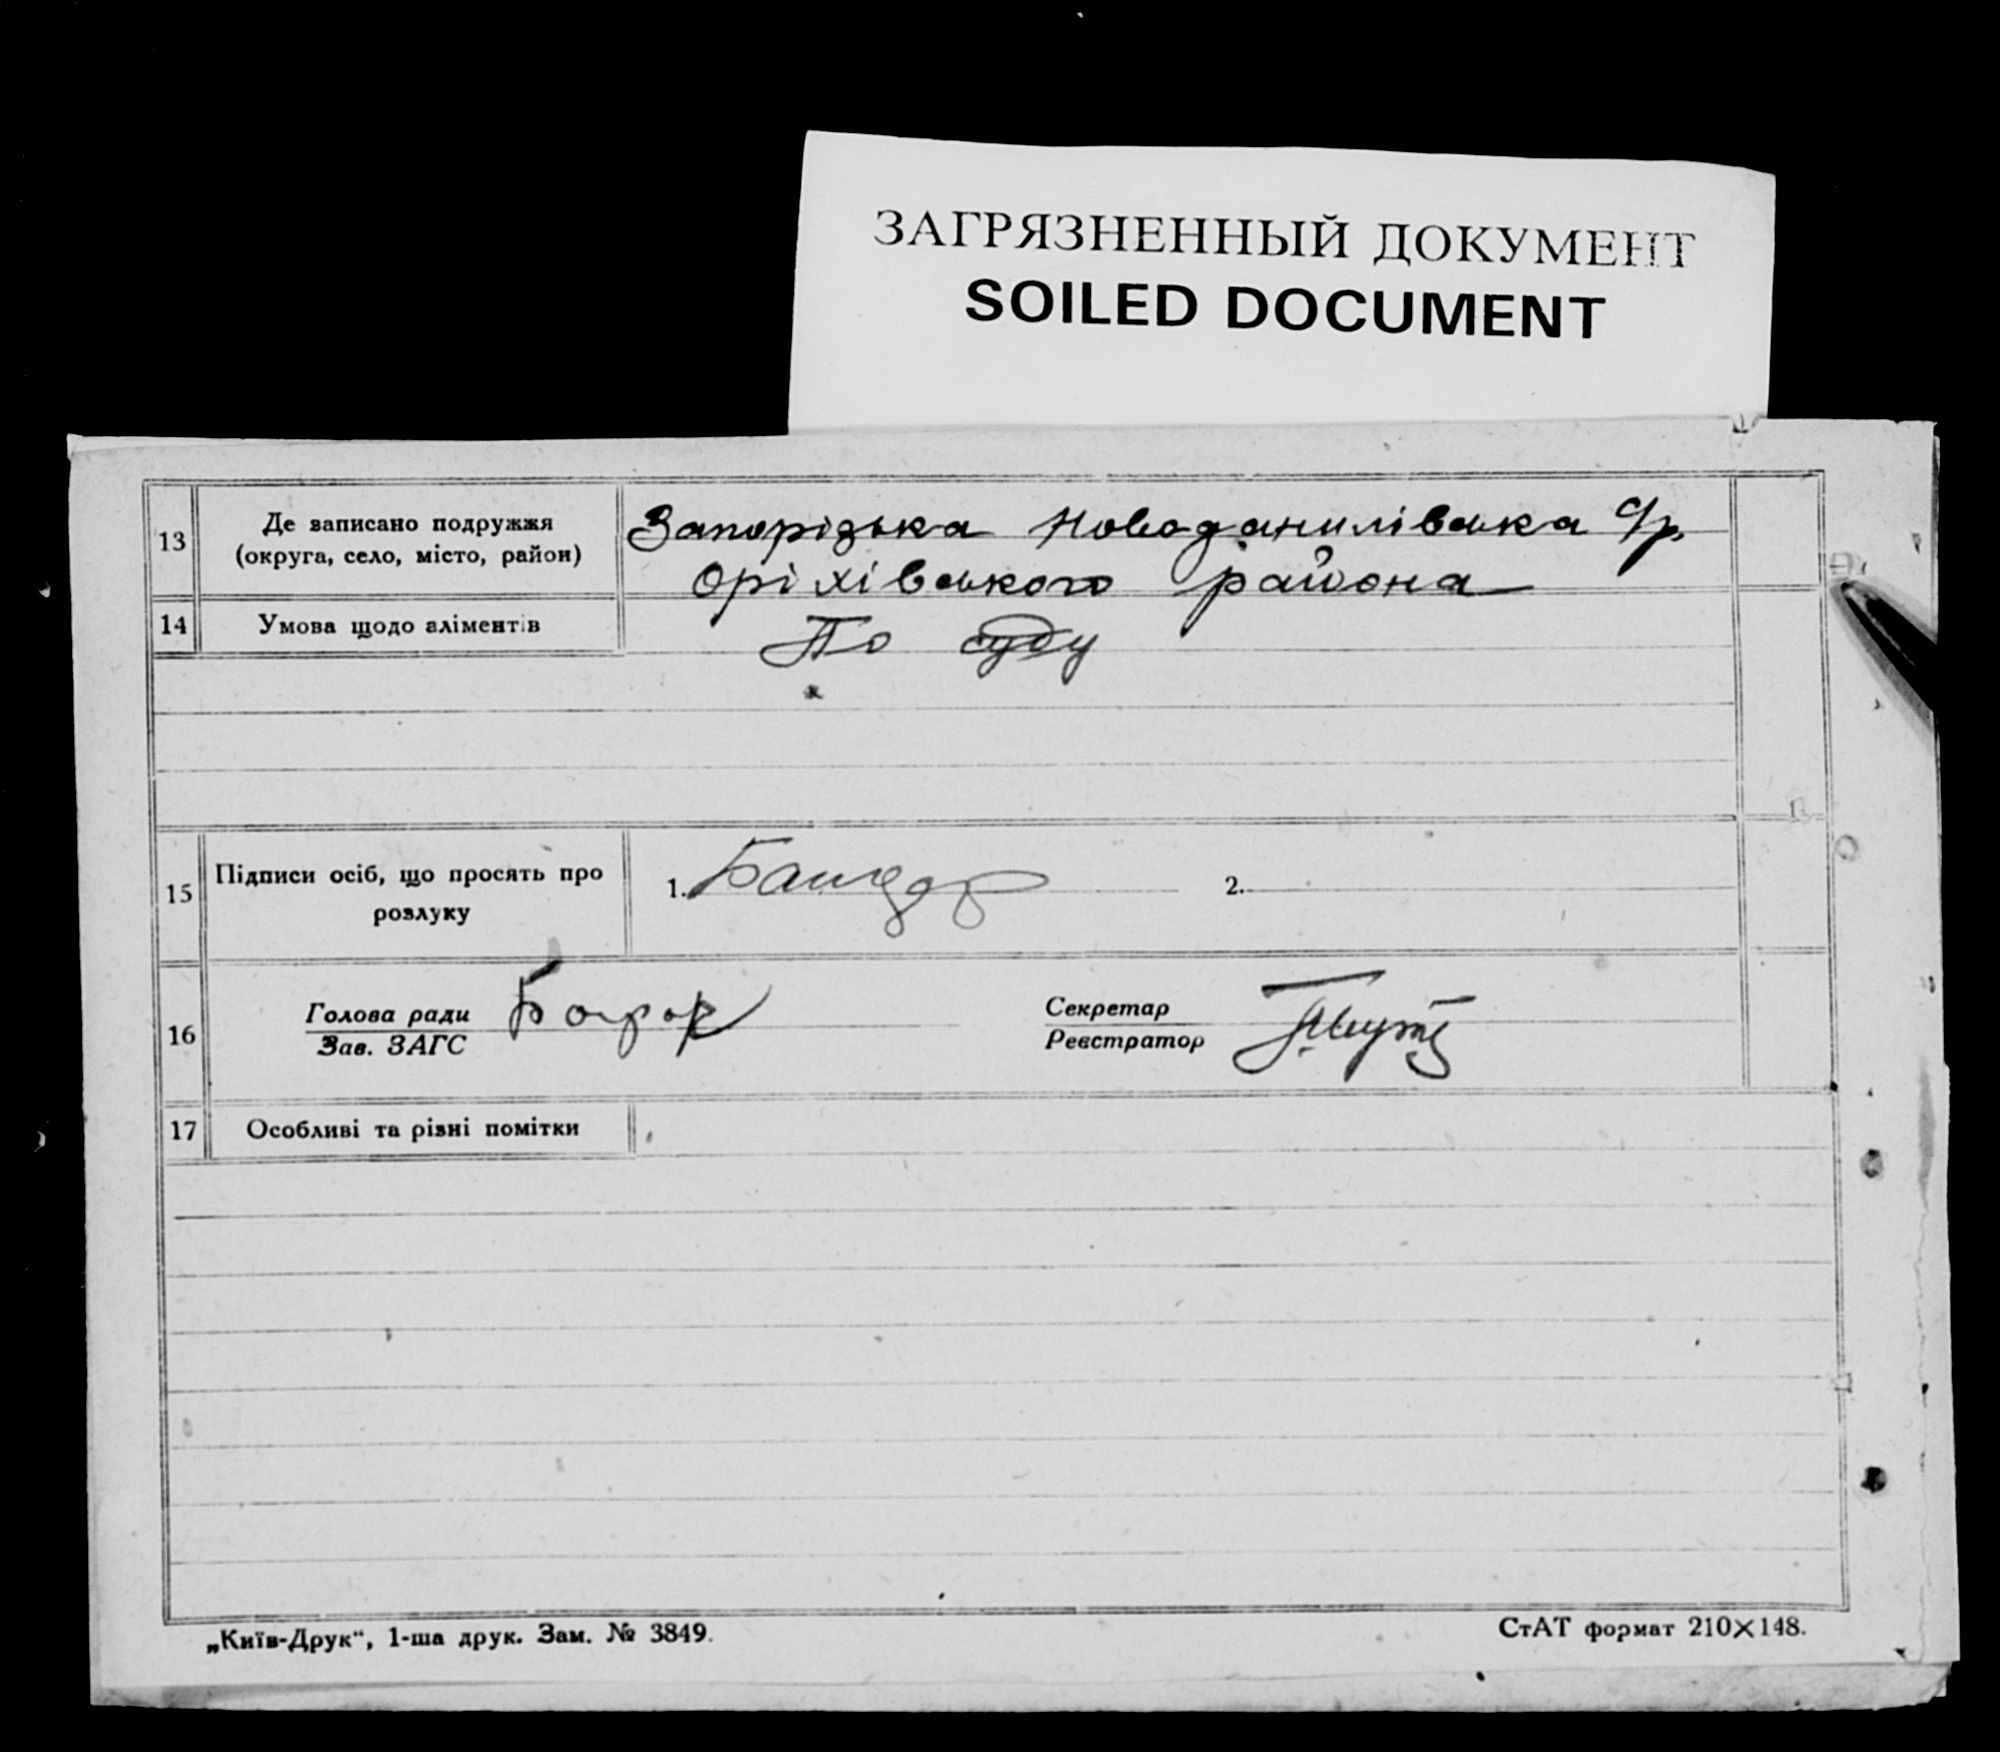 ЗАГРЯЗНЕННЫЙ ДОКУМЕНТ
SOILED DOCUMENT
13 Де записано подружжя (округа, село, місто, район)
Запорізька Новоданилівська с/р.
Оріхівського района
14 Умова щодо аліментів По суду
15 Підписи осіб, що просять про розлуку
1. 2.
16 Голова ради
Зав. ЗАГС
Секретар
Реєстратор
17 Особливі та різні помітки
„Київ-Друк“, 1-ша друк. Зам. № 3849.
СтАТ формат 210×148.